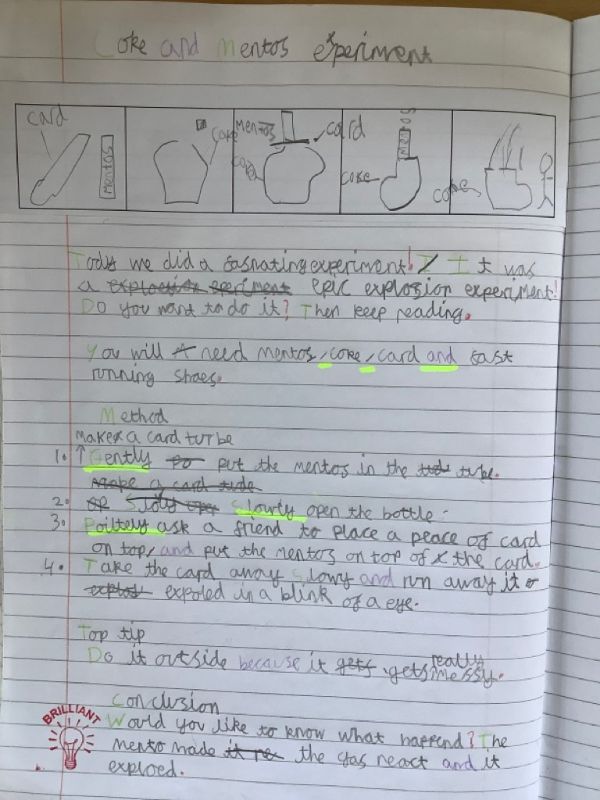 Coke and Mentos experiment
card
Mentos
coke
Mentos card
coke
Mentos
coke
coke
Today we did a fasnating experiment! I It was
a explocion eperiment epic explosion experiment!
Do you want to do it? Then keep reading.
You will need mentos, coke, card and fast
running shoes.
Method
Make a card tube
1. ↑ Gently put the mentos in the tube.
Make a card tube
2. Slowly open the bottle.
3. Poiltely ask a friend to place a peace of card
on top, and put the mentos on top of the card.
4. Take the card away slowy and run away it
explos expoled in a blink of a eye.
Top tip
Do it outside because it gets gets really messy.
BRILLIANT
Conclusion
Would you like to know what happend? The
mento made the gas react and it
exploed.